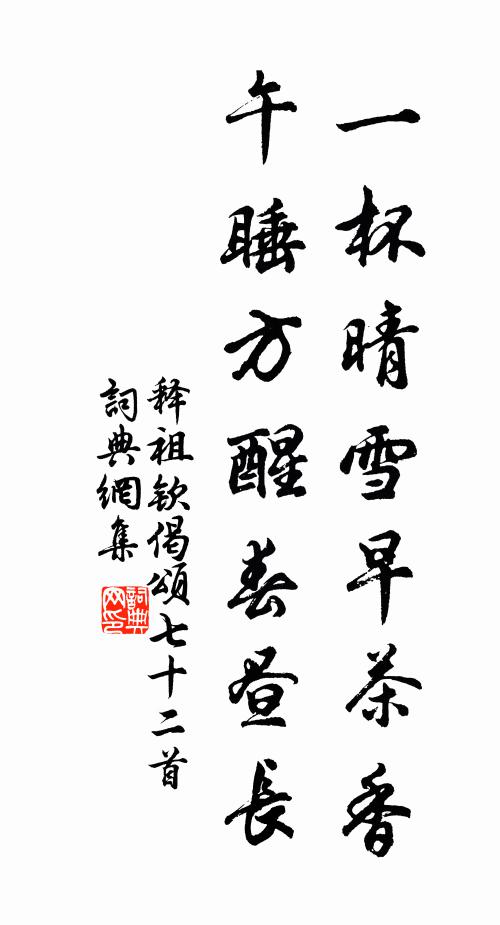 一杯晴雪早茶香
午睡方醒春昼長
释祖欽偈頌七十二首
詞典網集
詞典网印